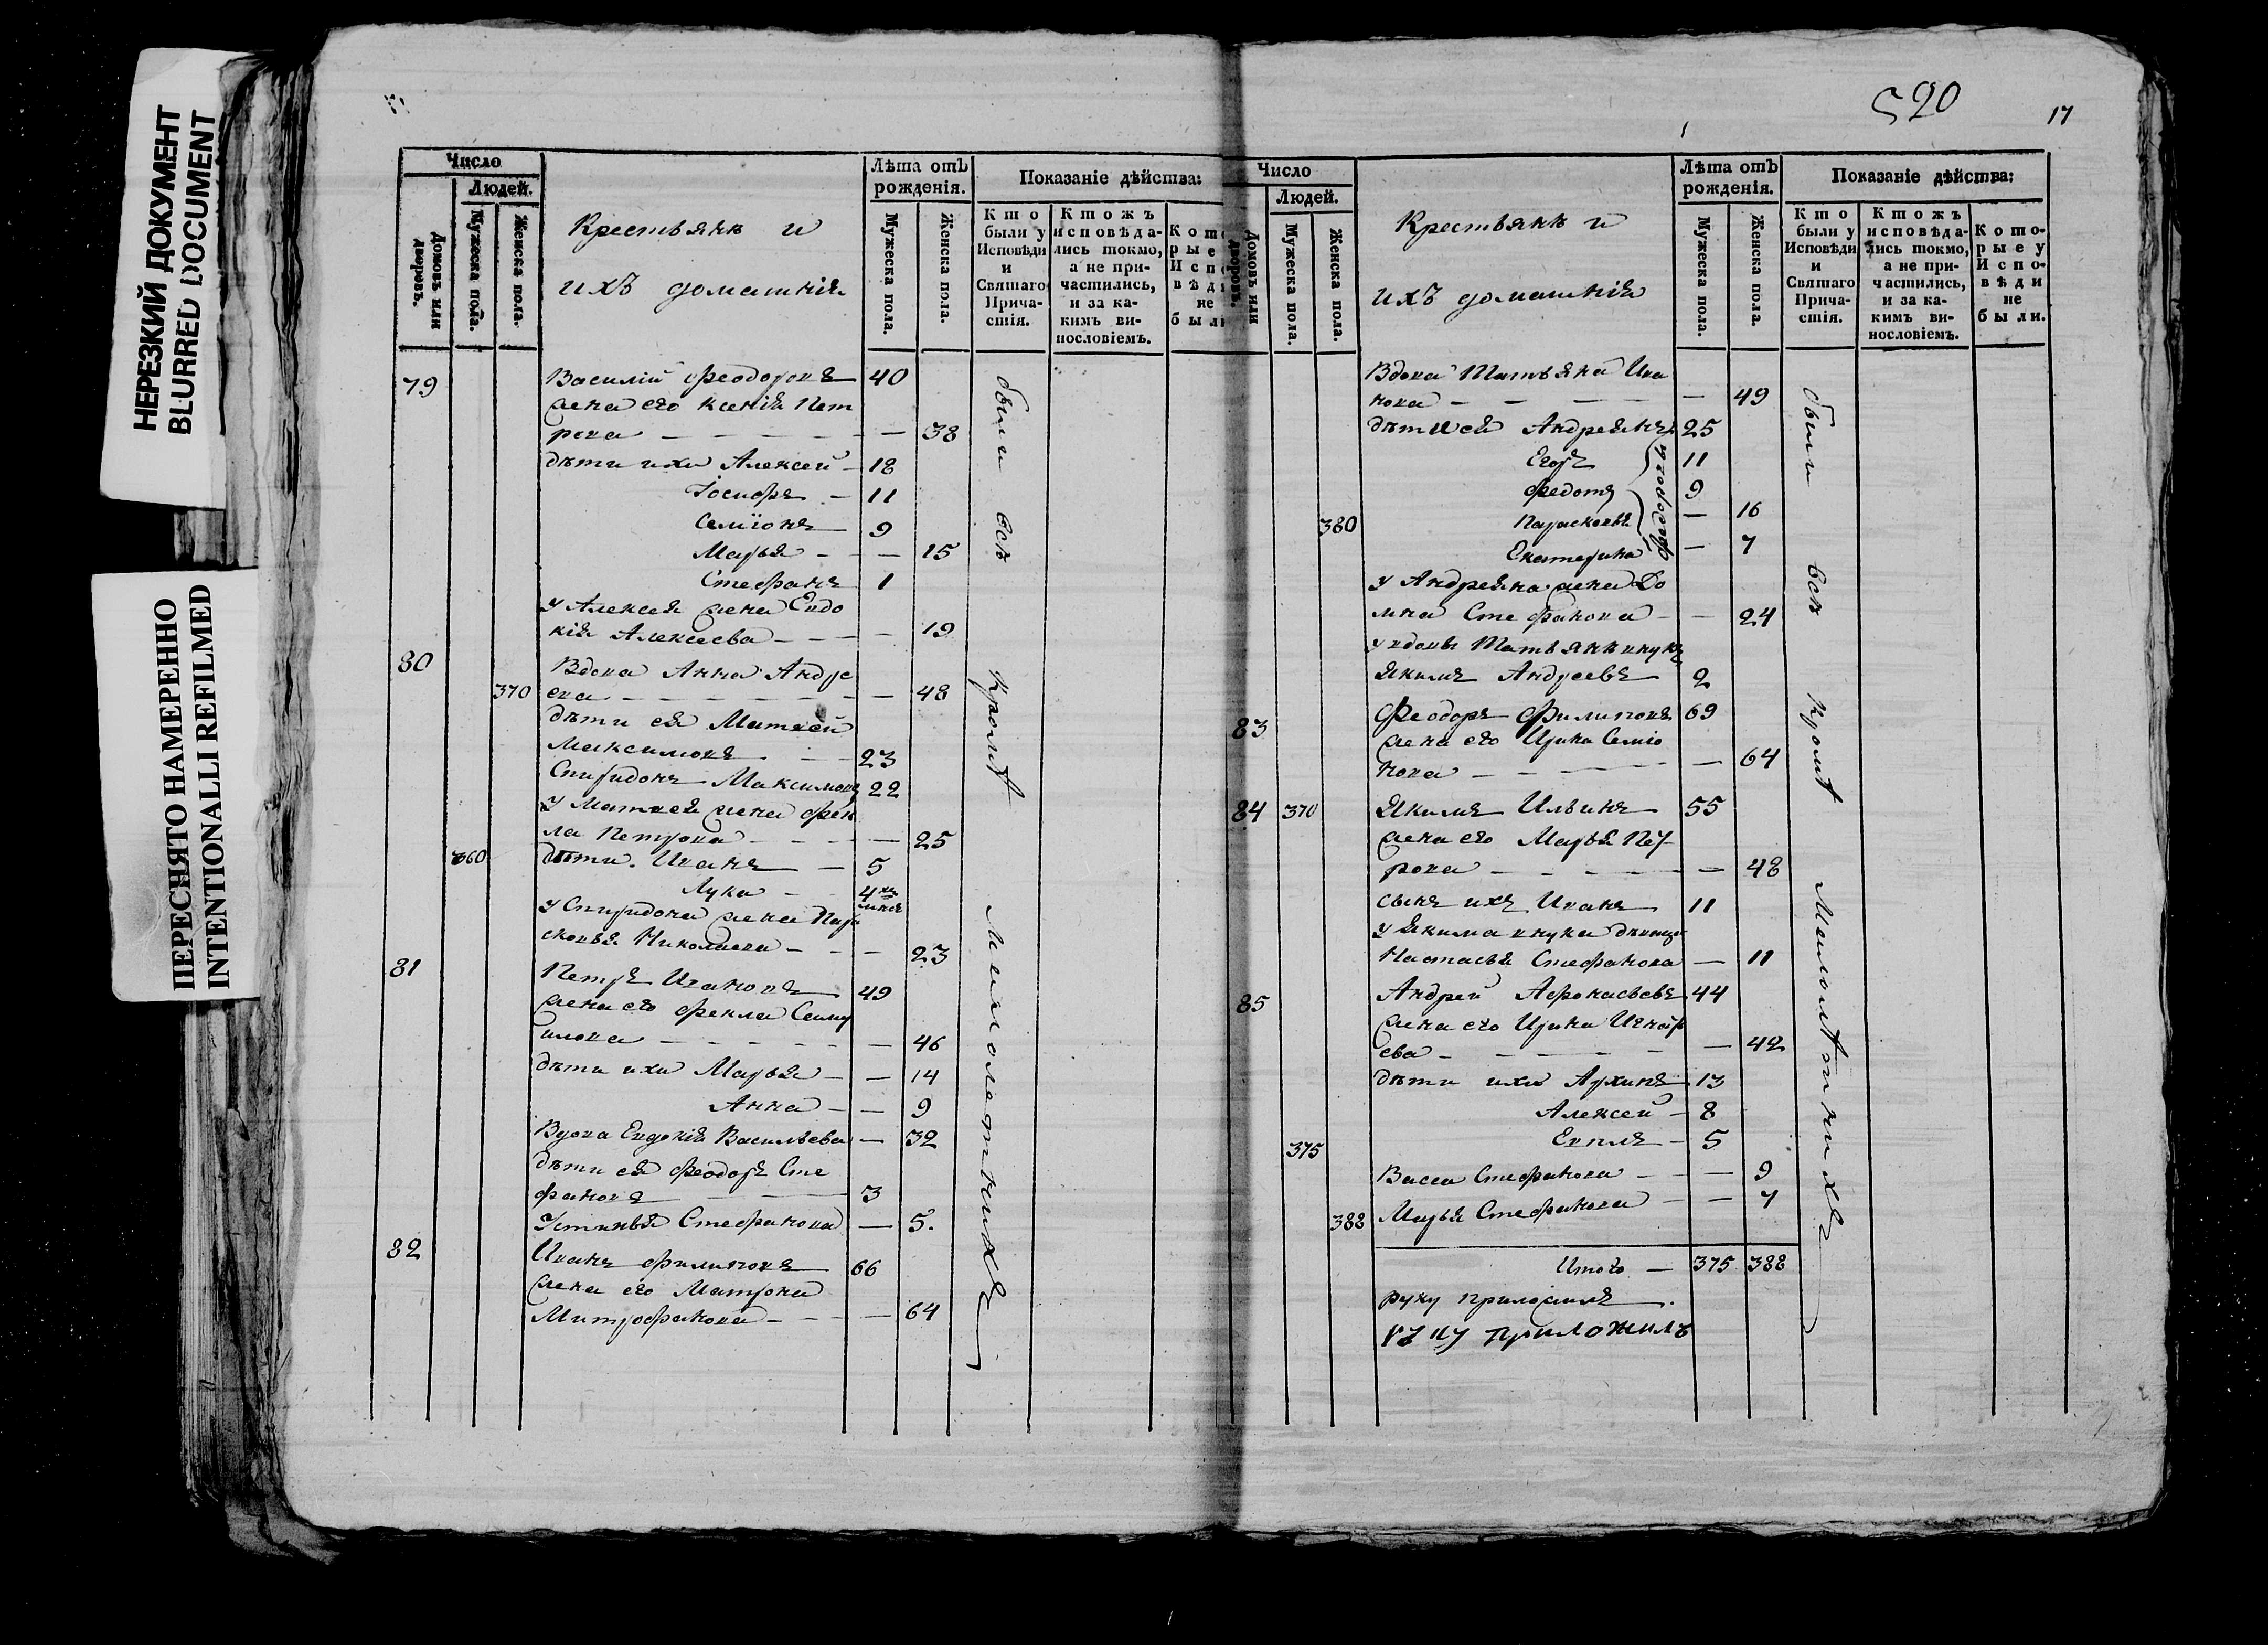 НЕРЕЗКИЙ ДОКУМЕНТ
BLURRED DOCUMENT
ПЕРЕСНЯТО НАМЕРЕННО
INTENTIONALLI REFILMED
Число
Людей.
Домовъ или дворовъ.
Мужеска пола.
Женска пола.
Крестьянъ и
ихъ домашнія
Лѣта отЪ рожденія.
Мужеска пола.
Женска пола.
Показаніе дѣйства:
Кто были у Исповѣди и Святаго Причастія.
Ктожъ исповѣдались токмо, а не причастились, и за какимъ винословіемъ.
79 Василій Феодоровъ 40
жена его Ксенія Пет
рова — — — 38
дѣти ихъ Алексей — 18
Іосифъ — 11
Семіонъ — 9
Марья — — 15
Стефанъ 1
у Алексея жена Евдо
кія Алексеева — — — 19
80 Вдова Анна Андре
370 ева — — — 48
дѣти ея Матвей
Максимовъ — — 23
Спиридонъ Максимовъ 22
у Матвея жена Фек
ла Петрова — — — 25
360 дѣти Иванъ — 5
Лука — — 4
у Спиридона жена Пара
сковья Николаева — — 23
81 Петръ Ивановъ 49
жена его Фекла Саму
илова — — — 46
дѣти ихъ Марья — — 14
Анна — — 9
Вдова Евдокія Васильева — 32
дѣти ея Феодоръ Сте
фановъ 3
Устинья Стефанова — 5.
82 Иванъ Филиповъ 66
жена его Матрона
Митрофанова — — — 64
были всѣ кромѣ малолетнихъ
520
17
Число
Людей.
Домовъ или дворовъ.
Мужеска пола.
Женска пола.
Крестьянъ и
ихъ домашнія
Лѣта отЪ рожденія.
Мужеска пола.
Женска пола.
Показаніе дѣйства:
Кто были у Исповѣди и Святаго Причастія.
Ктожъ исповѣдались токмо, а не причастились, и за какимъ винословіемъ.
Которые у Исповѣди не были.
Вдова Татьяна Ива
нова — — — — 49
дѣти ей Андреянъ 25
Егоръ 11
Федотъ 9
380 Парасковья — 16
Екатерина — 7
у Андреяна жена До
мна Стефанова — — 24
у вдовы Татьяны внукъ
Якимъ Андреевъ 2
83 Феодоръ Филиповъ 69
жена его Ирина Семіо
нова — — — — 64
84 370 Якимъ Ильинъ 55
жена его Марья Пет
рова — — — 48
сынъ ихъ Иванъ 11
у Якима внука девица
Настасья Стефанова — 11
85 Андрей Афонасьевъ 44
жена его Ирина Игнать
ева — — — — 42
дѣти ихъ Архипъ 13
Алексей — 8
375 Евплъ — 5
Васса Стефанова — — 9
388 Марья Стефанова — — 7
Итого — 375 388
руку приложилъ.
руку приложилъ
были всѣ кромѣ малолѣтнихъ